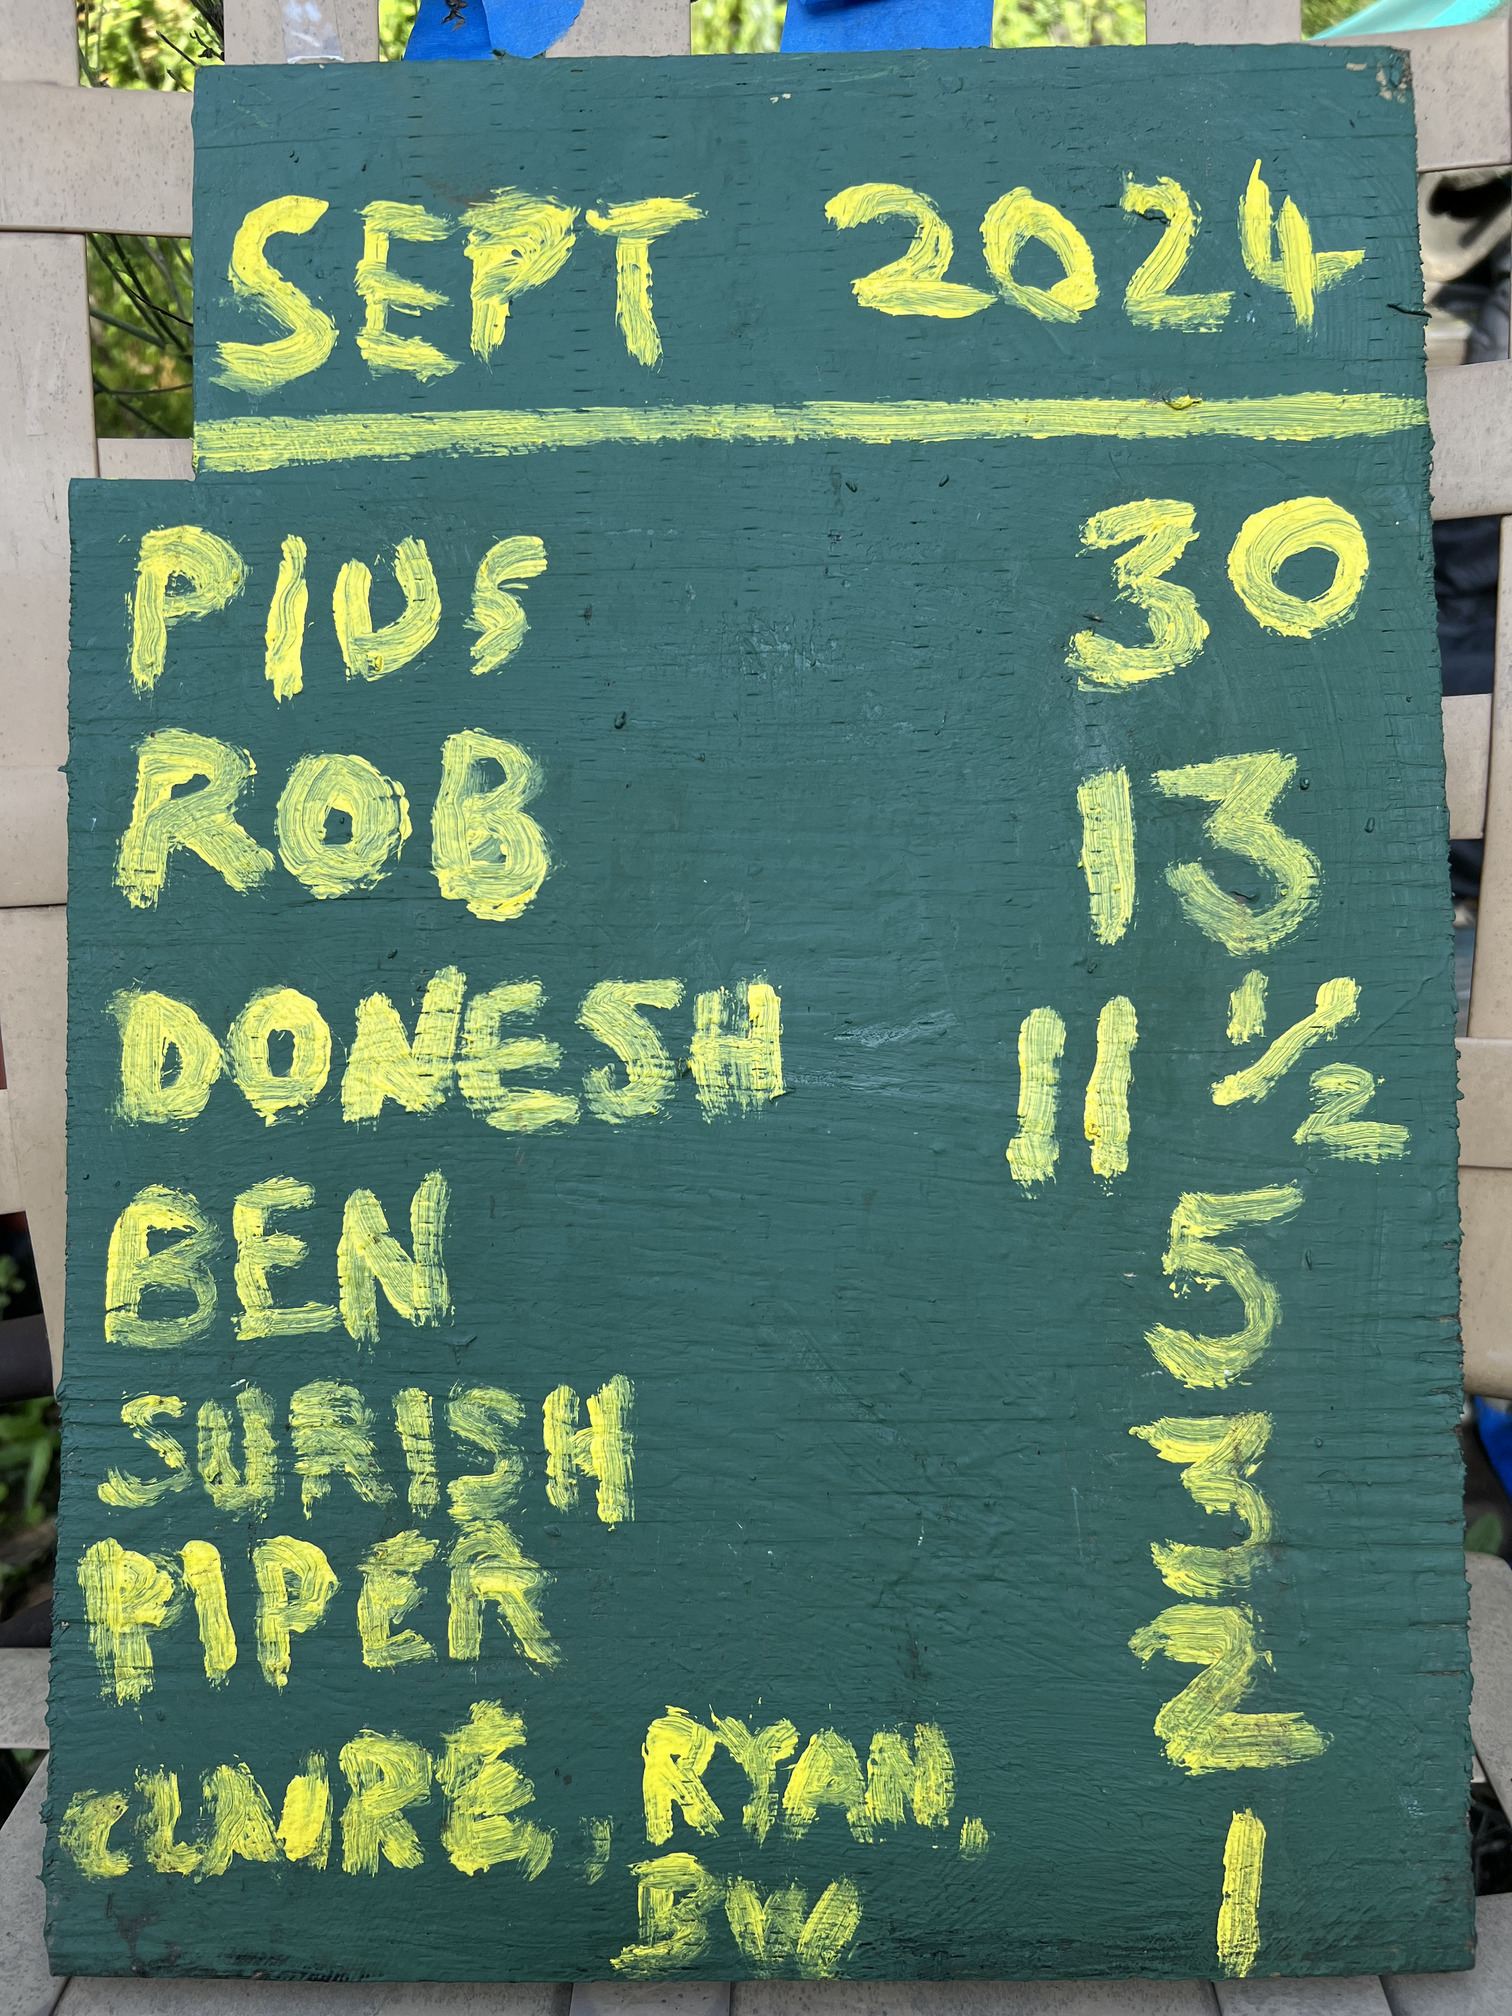 SEPT 2024
PIUS 30
ROB 13
DONESH 11 1/2
BEN 5
SURISH 3
PIPER 2
CLAIRE, RYAN,
BW 1